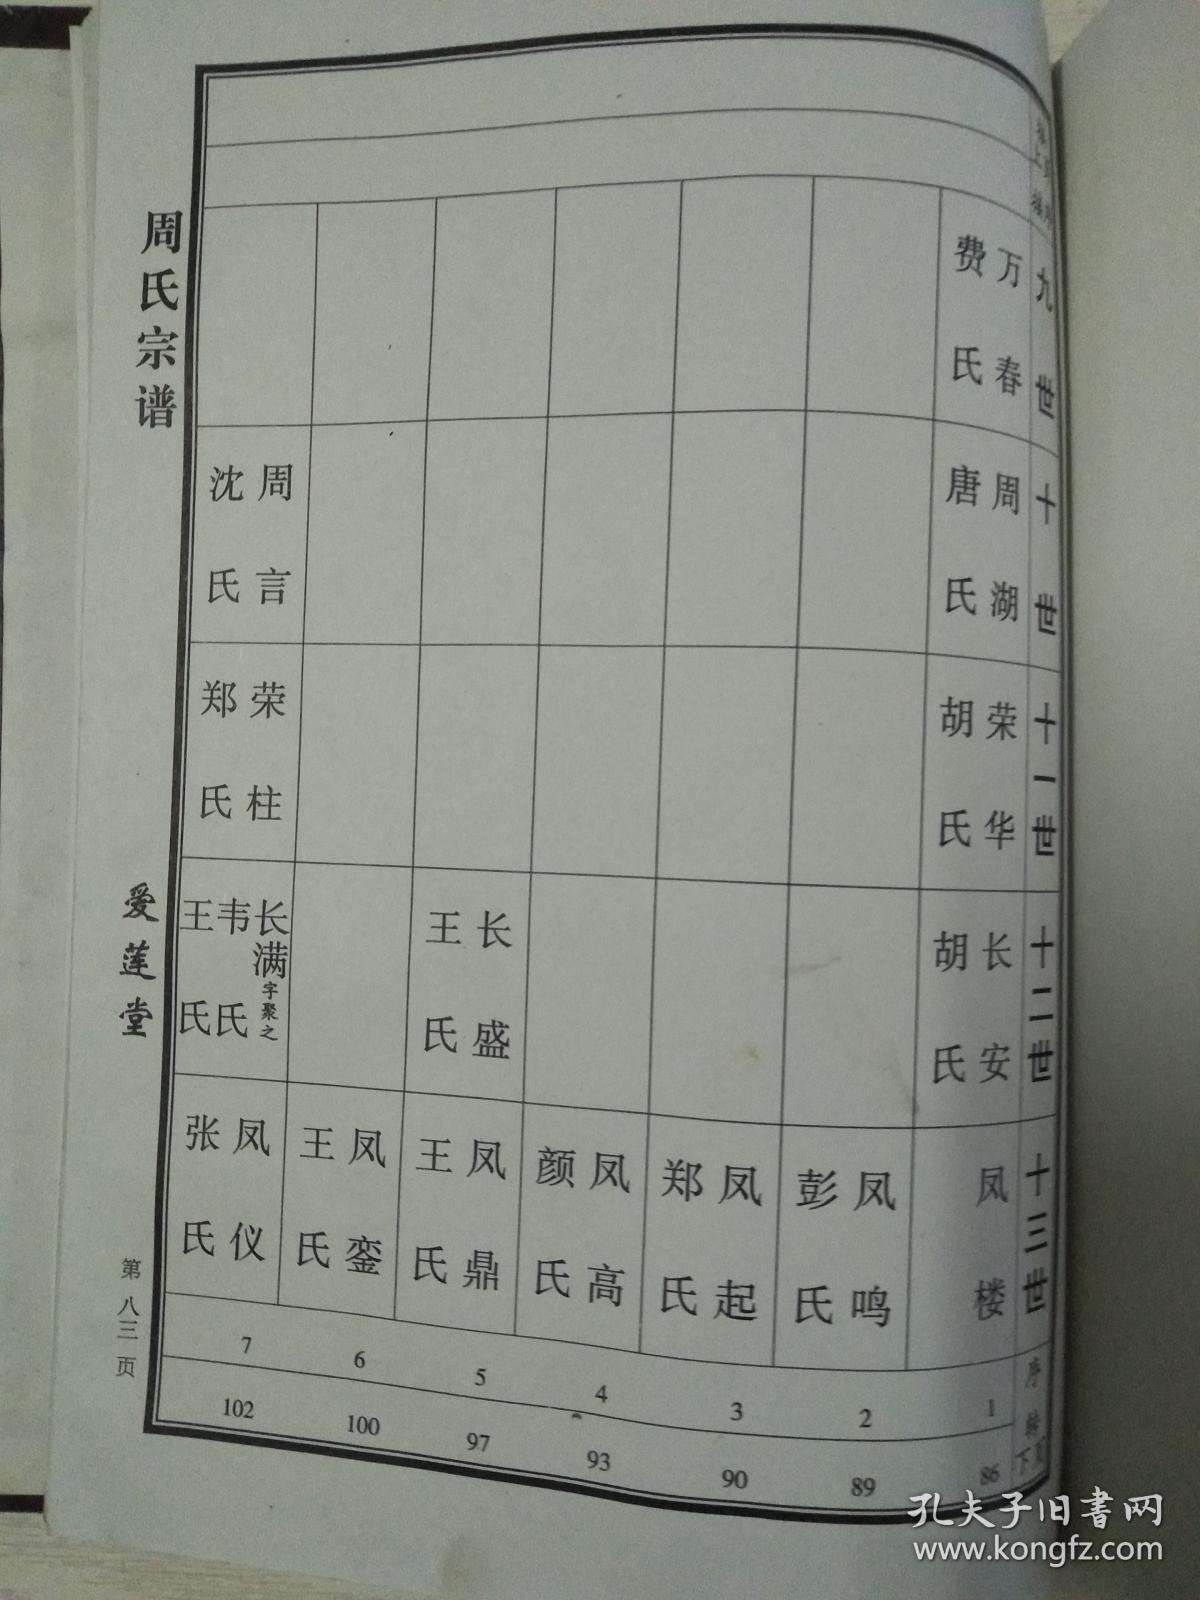 九世
万春
费氏
十世
周湖
唐氏
周言
沈氏
十一世
荣华
胡氏
荣柱
郑氏
十二世
长安
胡氏
长盛
王氏
长满字聚之
韦氏
王氏
十三世
凤楼
凤鸣
彭氏
凤起
郑氏
凤高
颜氏
凤鼎
王氏
凤銮
王氏
凤仪
张氏
序
1
2
3
4
5
6
7
转下页
86
89
90
93
97
100
102
周氏宗谱
爱莲堂
第八三页
孔夫子旧书网
www.kongfz.com